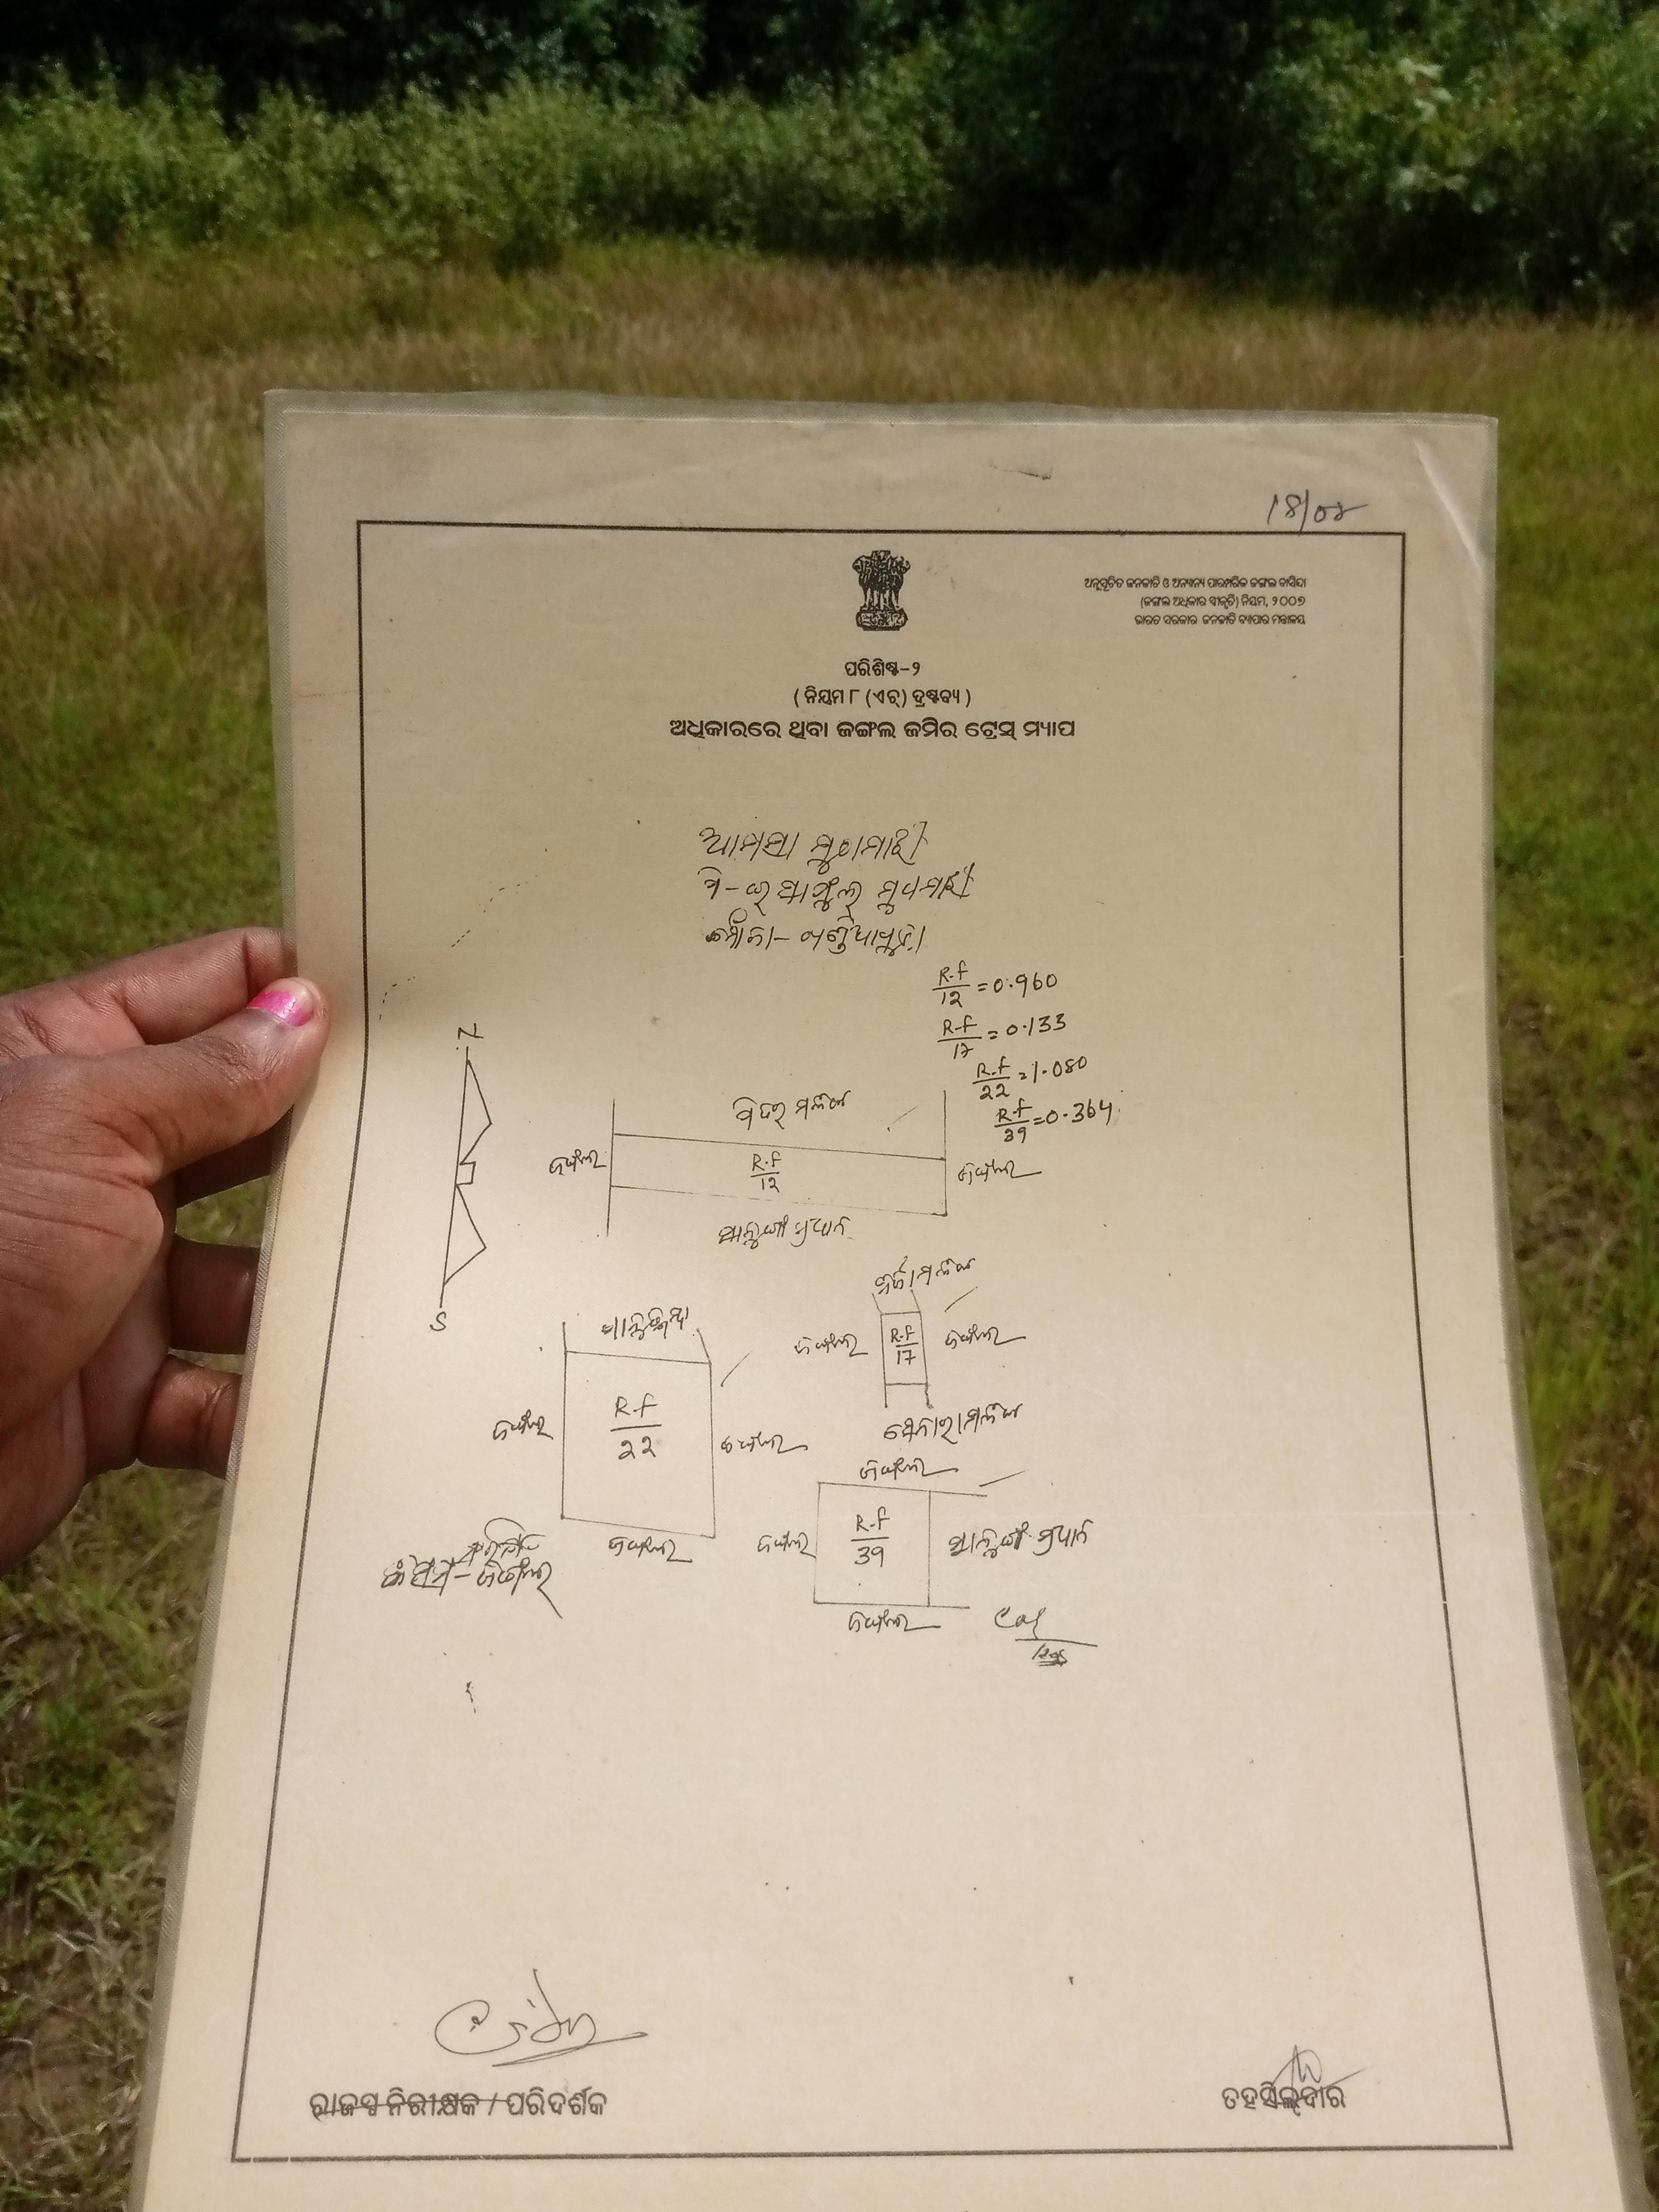 ୨୪/୦୪
ଅନୁସୂଚିତ ଜନଜାତି ଓ ଅନ୍ୟାନ୍ୟ ପାରମ୍ପରିକ ଜଙ୍ଗଲ ବାସିନ୍ଦା
(ଜଙ୍ଗଲ ଅଧିକାର ସ୍ୱୀକୃତି) ନିୟମ, ୨୦୦୭
ଭାରତ ସରକାର ଜନଜାତି ବ୍ୟାପାର ମନ୍ତ୍ରାଳୟ
ପରିଶିଷ୍ଟ-୨
( ନିୟମ ୮ (ଏଚ୍) ଦ୍ରଷ୍ଟବ୍ୟ )
ଅଧିକାରରେ ଥିବା ଜଙ୍ଗଲ ଜମିର ଟ୍ରେସ୍ ମ୍ୟାପ
ମୌଜା-
R.f/12 = 0.960
R-f/17 = 0.133
R.f/22 = 1.080
R.f/39 = 0.364
N
ମଲିକ
ଜଙ୍ଗଲ R.f/12 ଜଙ୍ଗଲ
ପ୍ରଧାନ
S
ମଲିକ
ଜଙ୍ଗଲ R.f/17 ଜଙ୍ଗଲ
ମଲିକ
ଜଙ୍ଗଲ R.f/22 ଜଙ୍ଗଲ
ଜଙ୍ଗଲ
ଜଙ୍ଗଲ
ଜଙ୍ଗଲ R.f/39 ପ୍ରଧାନ
ଜଙ୍ଗଲ
କିସମ-ଜଙ୍ଗଲ
ରାଜସ୍ୱ ନିରୀକ୍ଷକ / ପରିଦର୍ଶକ
ତହସିଲଦାର